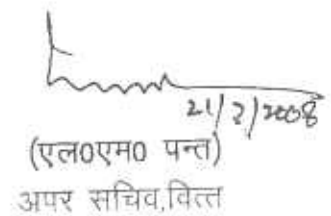 21/2/2008
(एल0एम0 पन्त)
अपर सचिव,वित्त